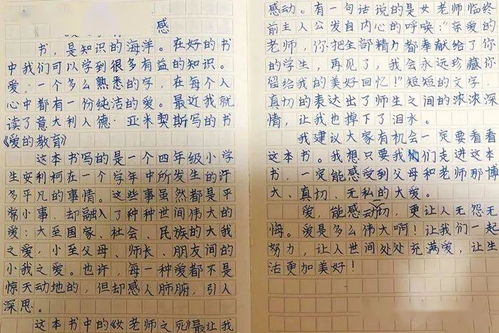 感
书，是知识的海洋。在好的书
中我们可以学到很多有益的知识。
爱，一个多么熟悉的字，在每个人
心中都有一份纯洁的爱。最近我就
读了意大利人德·亚米契斯写的书
《爱的教育》
这本书写的是一个四年级小学
生安利柯在一个学年中所发生的许
多平凡的事情。这些事虽然都是平
常小事，却融入了种种世间伟大的
爱：大至国家、社会、民族的大我
之爱，小至父母、师长、朋友间的
小我之爱。也许，每一种爱都不是
惊天动地的，但却感人肺腑，引人
深思。
这本书中的《女老师之死》最让我
感动。有一句话说的是女老师临终
前主人公发自内心的呼唤：“亲爱的
老师，你把全部精力都奉献给了你
的学生，再见了，我会永远珍藏你
留给我的美好回忆！”短短的文字，
真切的表达出了师生之间的浓浓深
情，让我也掉下了泪水。
我建议大家有机会一定要看看
这本书。我想只要我们走进这本
书，一定能感受到父母和老师那博
大、真切、无私的大爱。
爱，能感动人，更让人无怨无
悔。爱是多么伟大啊！让我们一起
努力，让人世间处处充满爱，让生
活更加美好！